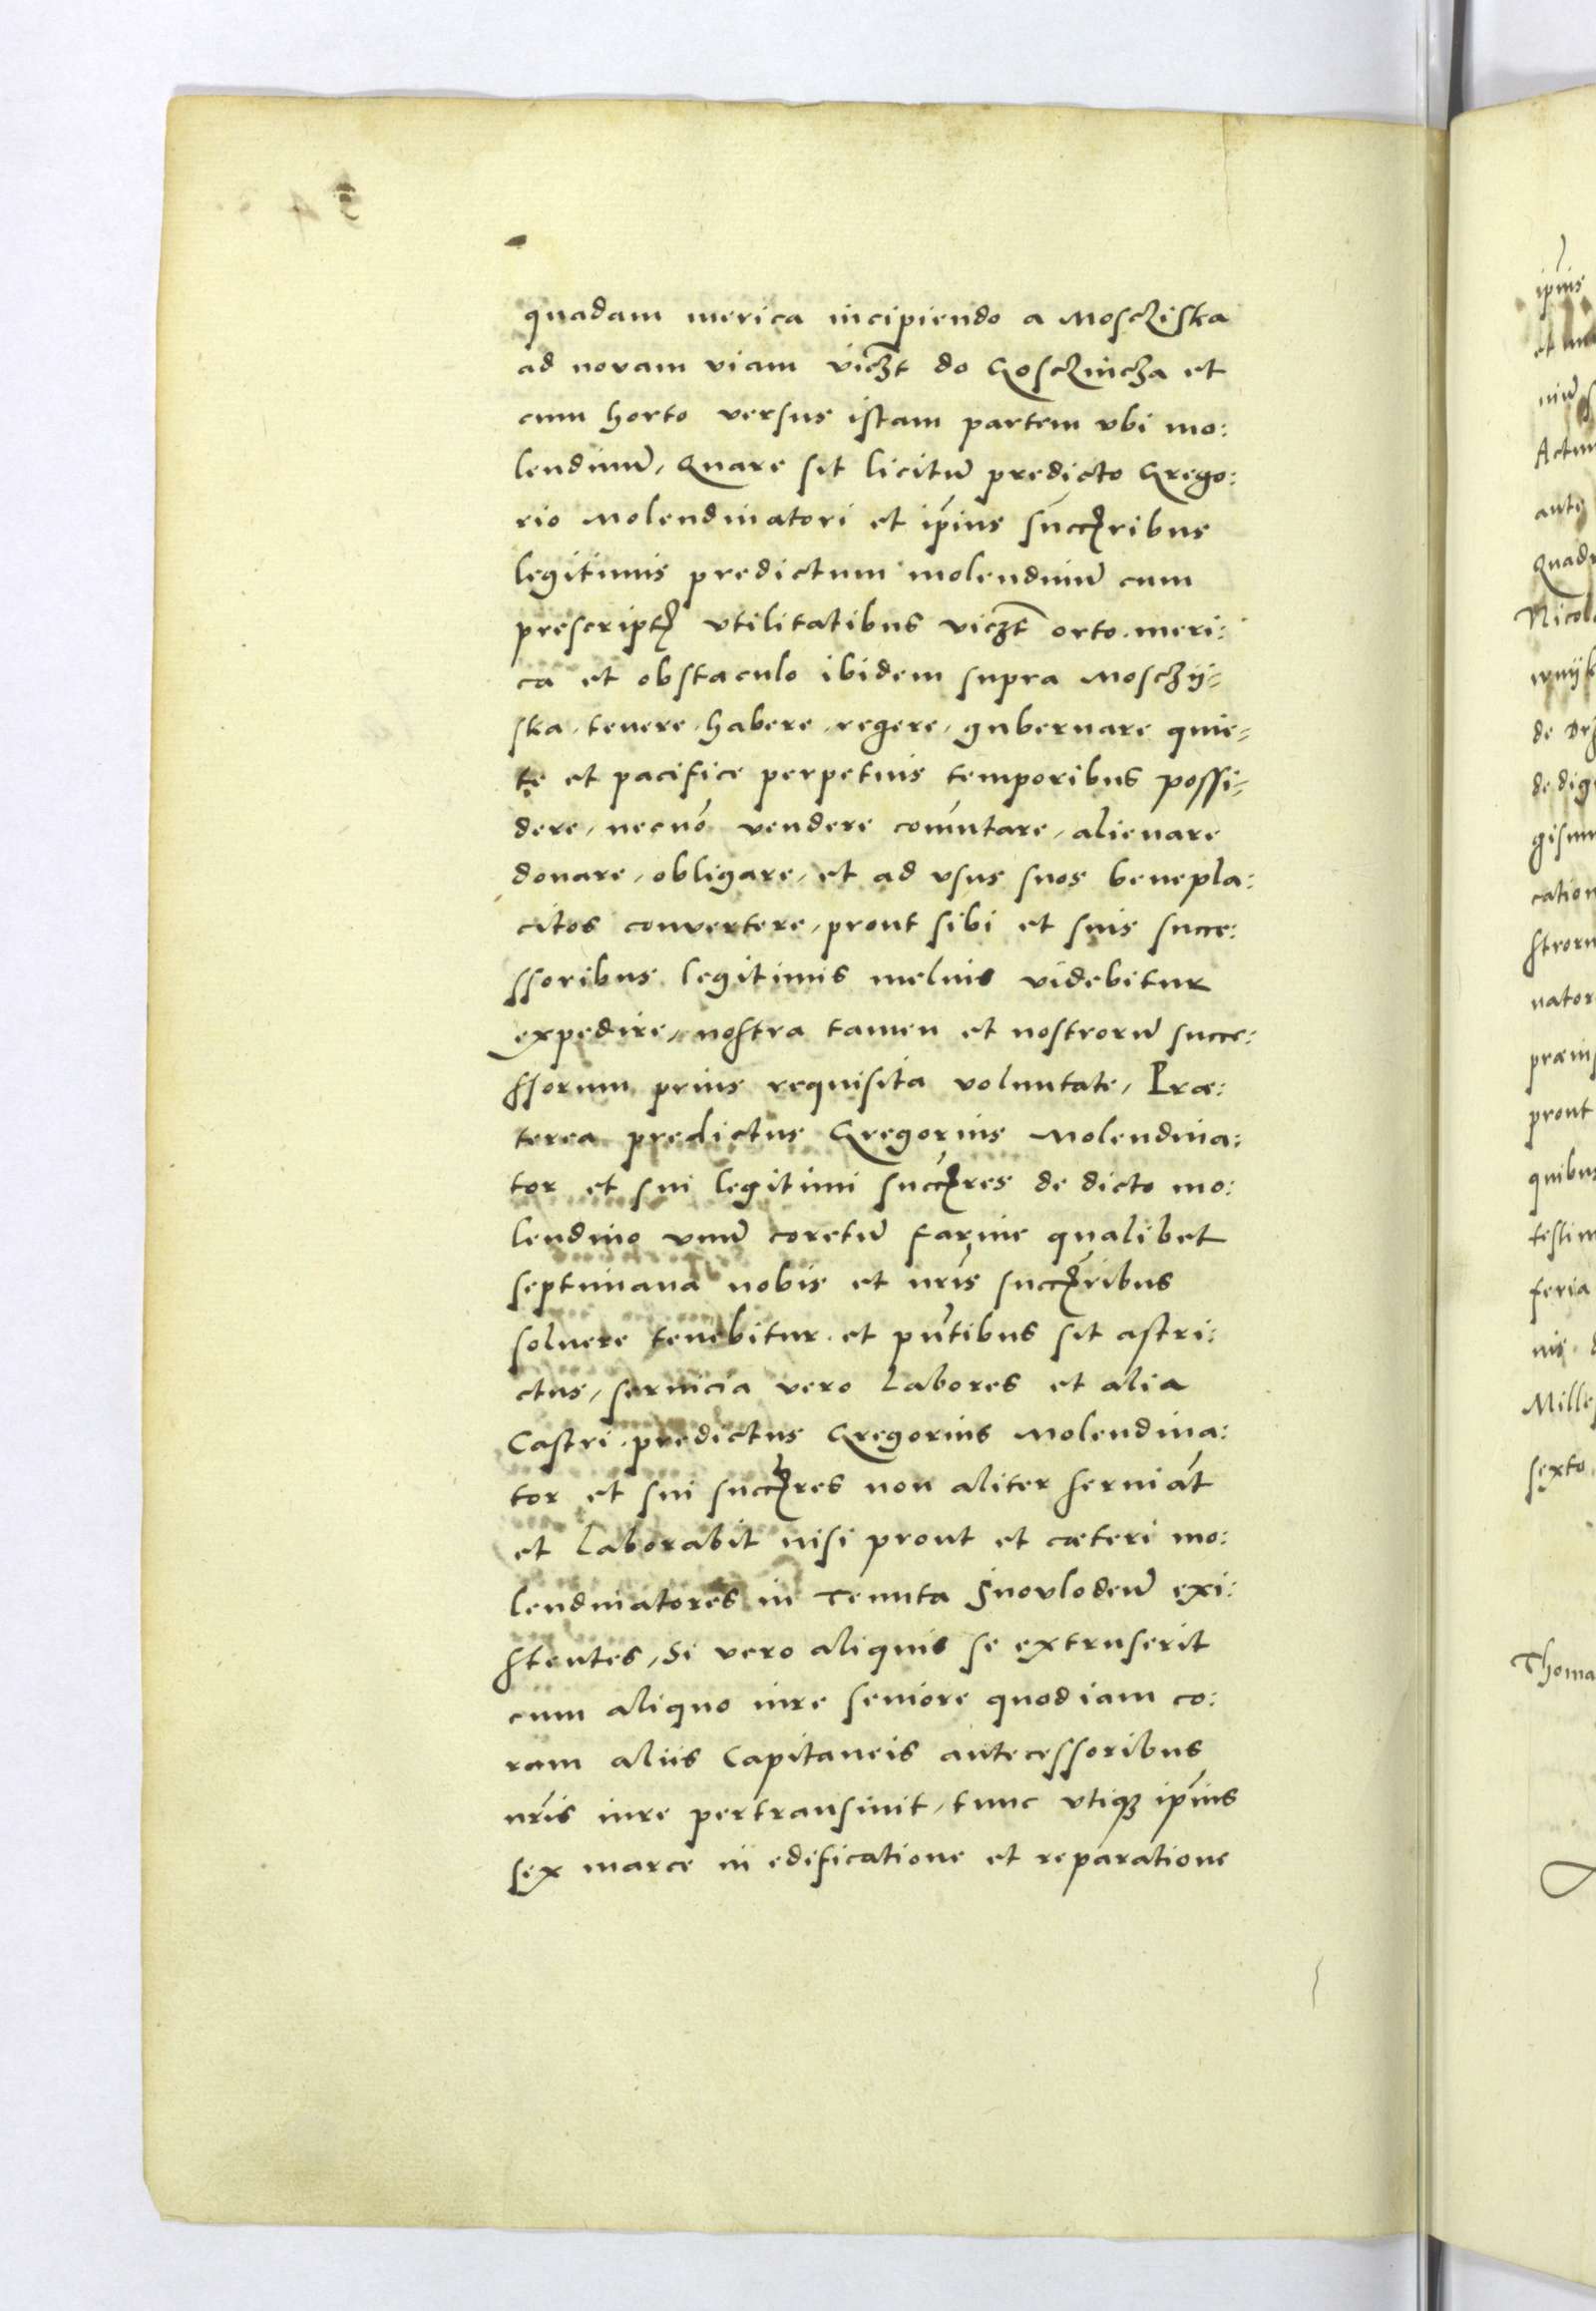 quadam merica incipiendo a Moscziska
ad novam viam vicz̃t do Goscznicza et
cum horto versus istam partem vbi mo:
lendinũ, Quare sit licitũ predicto Grego:
rio Molendinatori et ip̃ius succ̃ribus
legitimis predictum molendinũ cum
prescript̃ vtilitatibus vicz̃t orto. meri:
ca et obstaculo ibidem supra Mosczÿ=
ska, tenere, habere, regere, gubernare quie=
te et pacifice perpetuis temporibus possi=
dere, necnõ vendere com̃utare, alienare
donare, obligare, et ad vsus suos benepla:
citos convertere, prout sibi et suis succe:
ssoribus legitimis melius videbitur
expedire, nostra tamen et nostrorũ succe:
ssorum prius requisita voluntate, Præ:
terea predictus Gregorius Molendina:
tor et sui legitimi succ̃res de dicto mo:
lendino vnũ coretũ farine qualibet
septimana nobis et nr̃is succ̃ribus
soluere tenebitur. et pñtibus sit astri:
ctus, seruicia vero labores et alia
Castri. predictus Gregorius Molendina:
tor et sui succ̃res non aliter seruiãt
et laborabit nisi prout et cæteri mo:
lendinatores in Tenuta Jnovlodeñ exi:
stentes, Si vero aliquis se extruserit
cum aliquo iure seniore quod iam co:
ram aliis Capitaneis antecessoribus
nr̃is iure pertransiuit, tunc vtiqȝ ip̃ius
sex marce in edificatione et reparatione